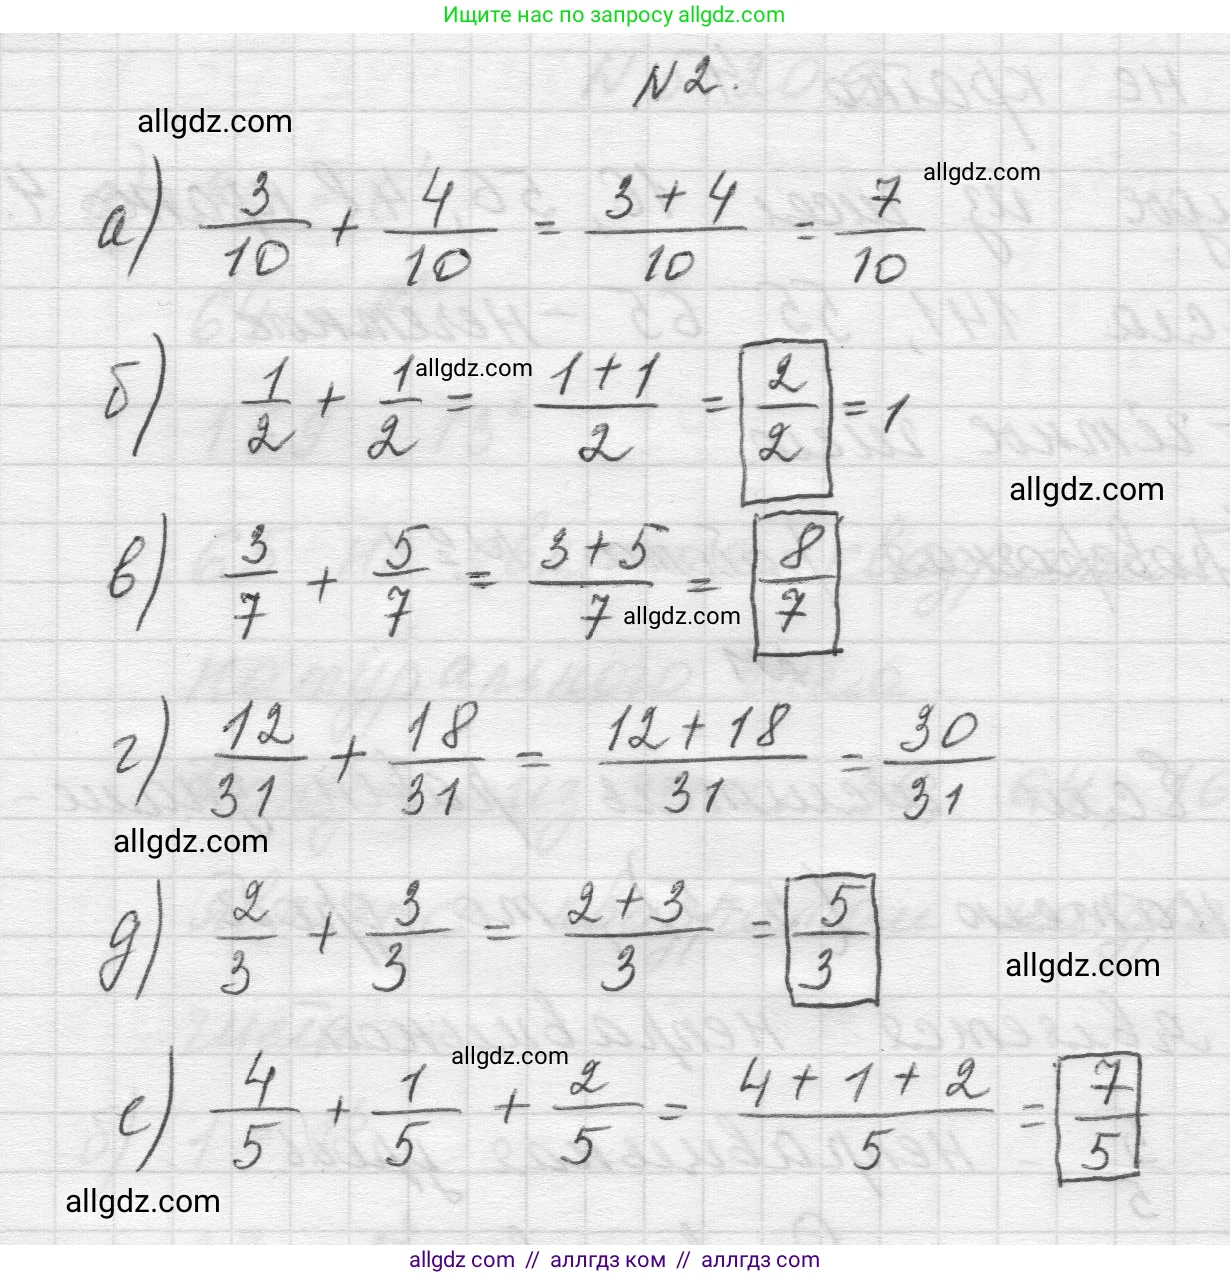 Ищите нас по запросу allgdz.com
N 2.
allgdz.com
allgdz.com
а) 3/10 + 4/10 = 3 + 4/10 = 7/10
б) 1/2 + 1/2 = 1 + 1/2 = 2/2 = 1
allgdz.com
allgdz.com
в) 3/7 + 5/7 = 3 + 5/7 = 8/7
allgdz.com
г) 12/31 + 18/31 = 12 + 18/31 = 30/31
allgdz.com
д) 2/3 + 3/3 = 2 + 3/3 = 5/3
allgdz.com
allgdz.com
е) 4/5 + 1/5 + 2/5 = 4 + 1 + 2/5 = 7/5
allgdz.com
allgdz com // аллгдз ком // allgdz.com